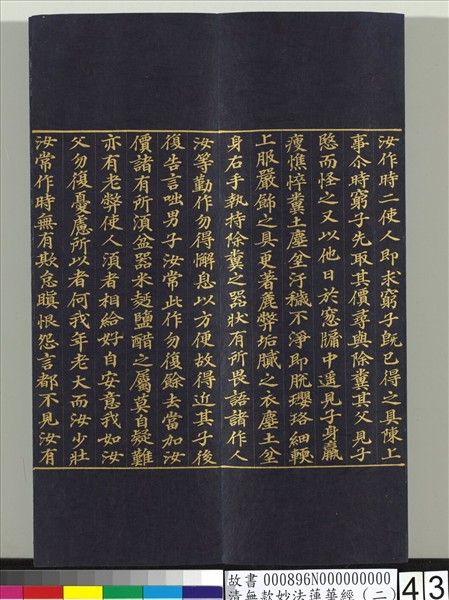 汝作時二使人即求窮子旣已得之具陳上
事尒時窮子先取其價尋與除糞其父見子
愍而怪之又以他日於窓牖中遙見子身羸
瘦憔悴糞土塵坌汙穢不淨即脫瓔珞細輭
上服嚴飾之具更著麁弊垢膩之衣塵土坌
身右手執持除糞之器狀有所畏語諸作人
汝等勤作勿得懈息以方便故得近其子後
復告言咄男子汝常此作勿復餘去當加汝
價諸有所須盆器米麪鹽醋之屬莫自疑難
亦有老弊使人須者相給好自安意我如汝
父勿復憂慮所以者何我年老大而汝少壯
汝常作時無有欺怠瞋恨怨言都不見汝有
故書 000896N000000000
清無款妙法蓮華經(二)
43